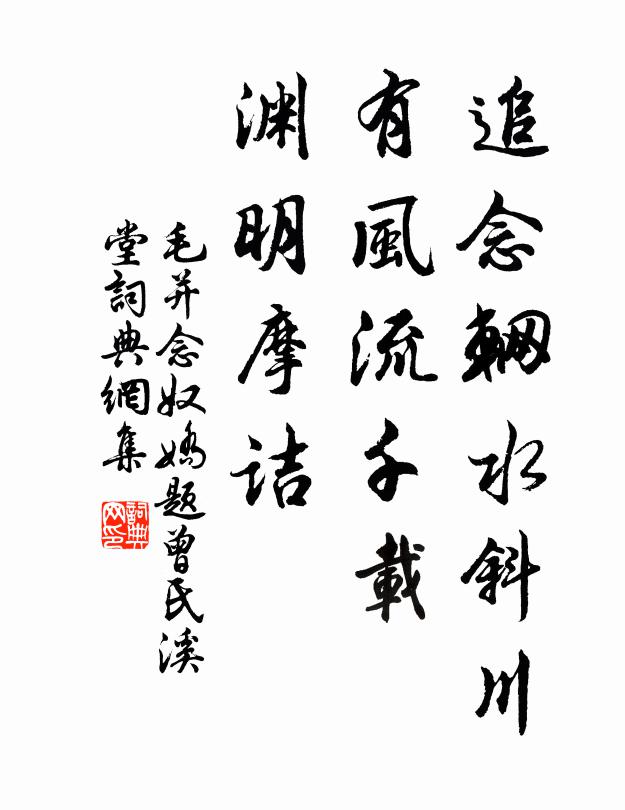 追念輞水斜川
有風流千載
淵明摩詰
毛并念奴嬌題曾氏溪
堂詞典網集
詞典
网印